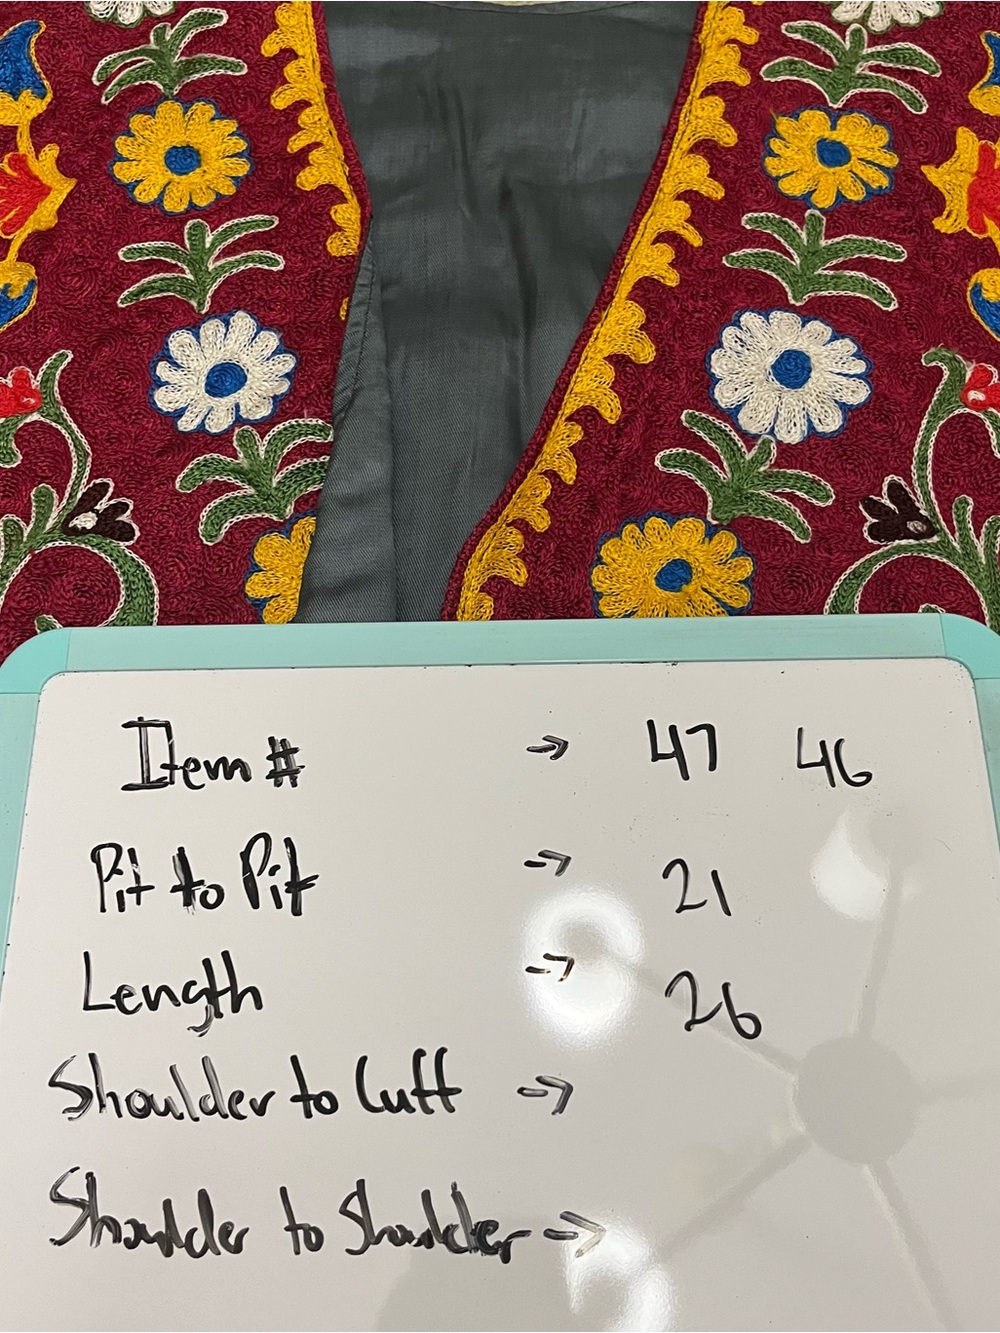 Item # → 47 46
Pit to Pit → 21
Length → 26
Shoulder to Cuff →
Shoulder to Shoulder →